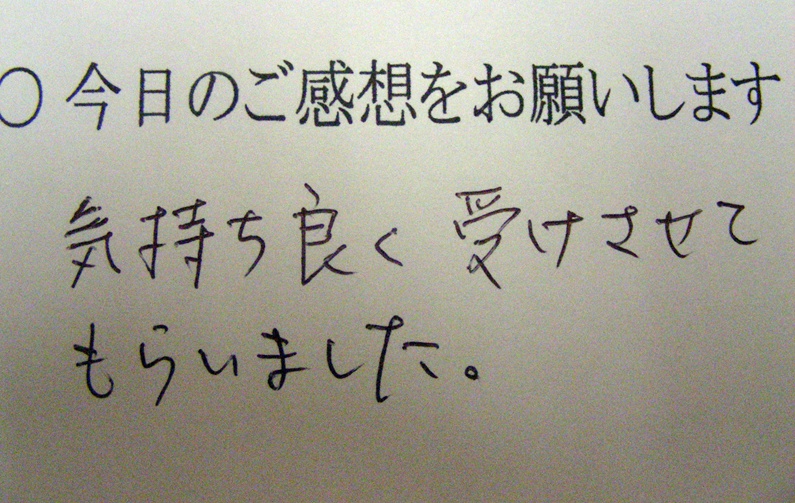 ○今日のご感想をお願いします
気持ち良く 受けさせて
もらいました。